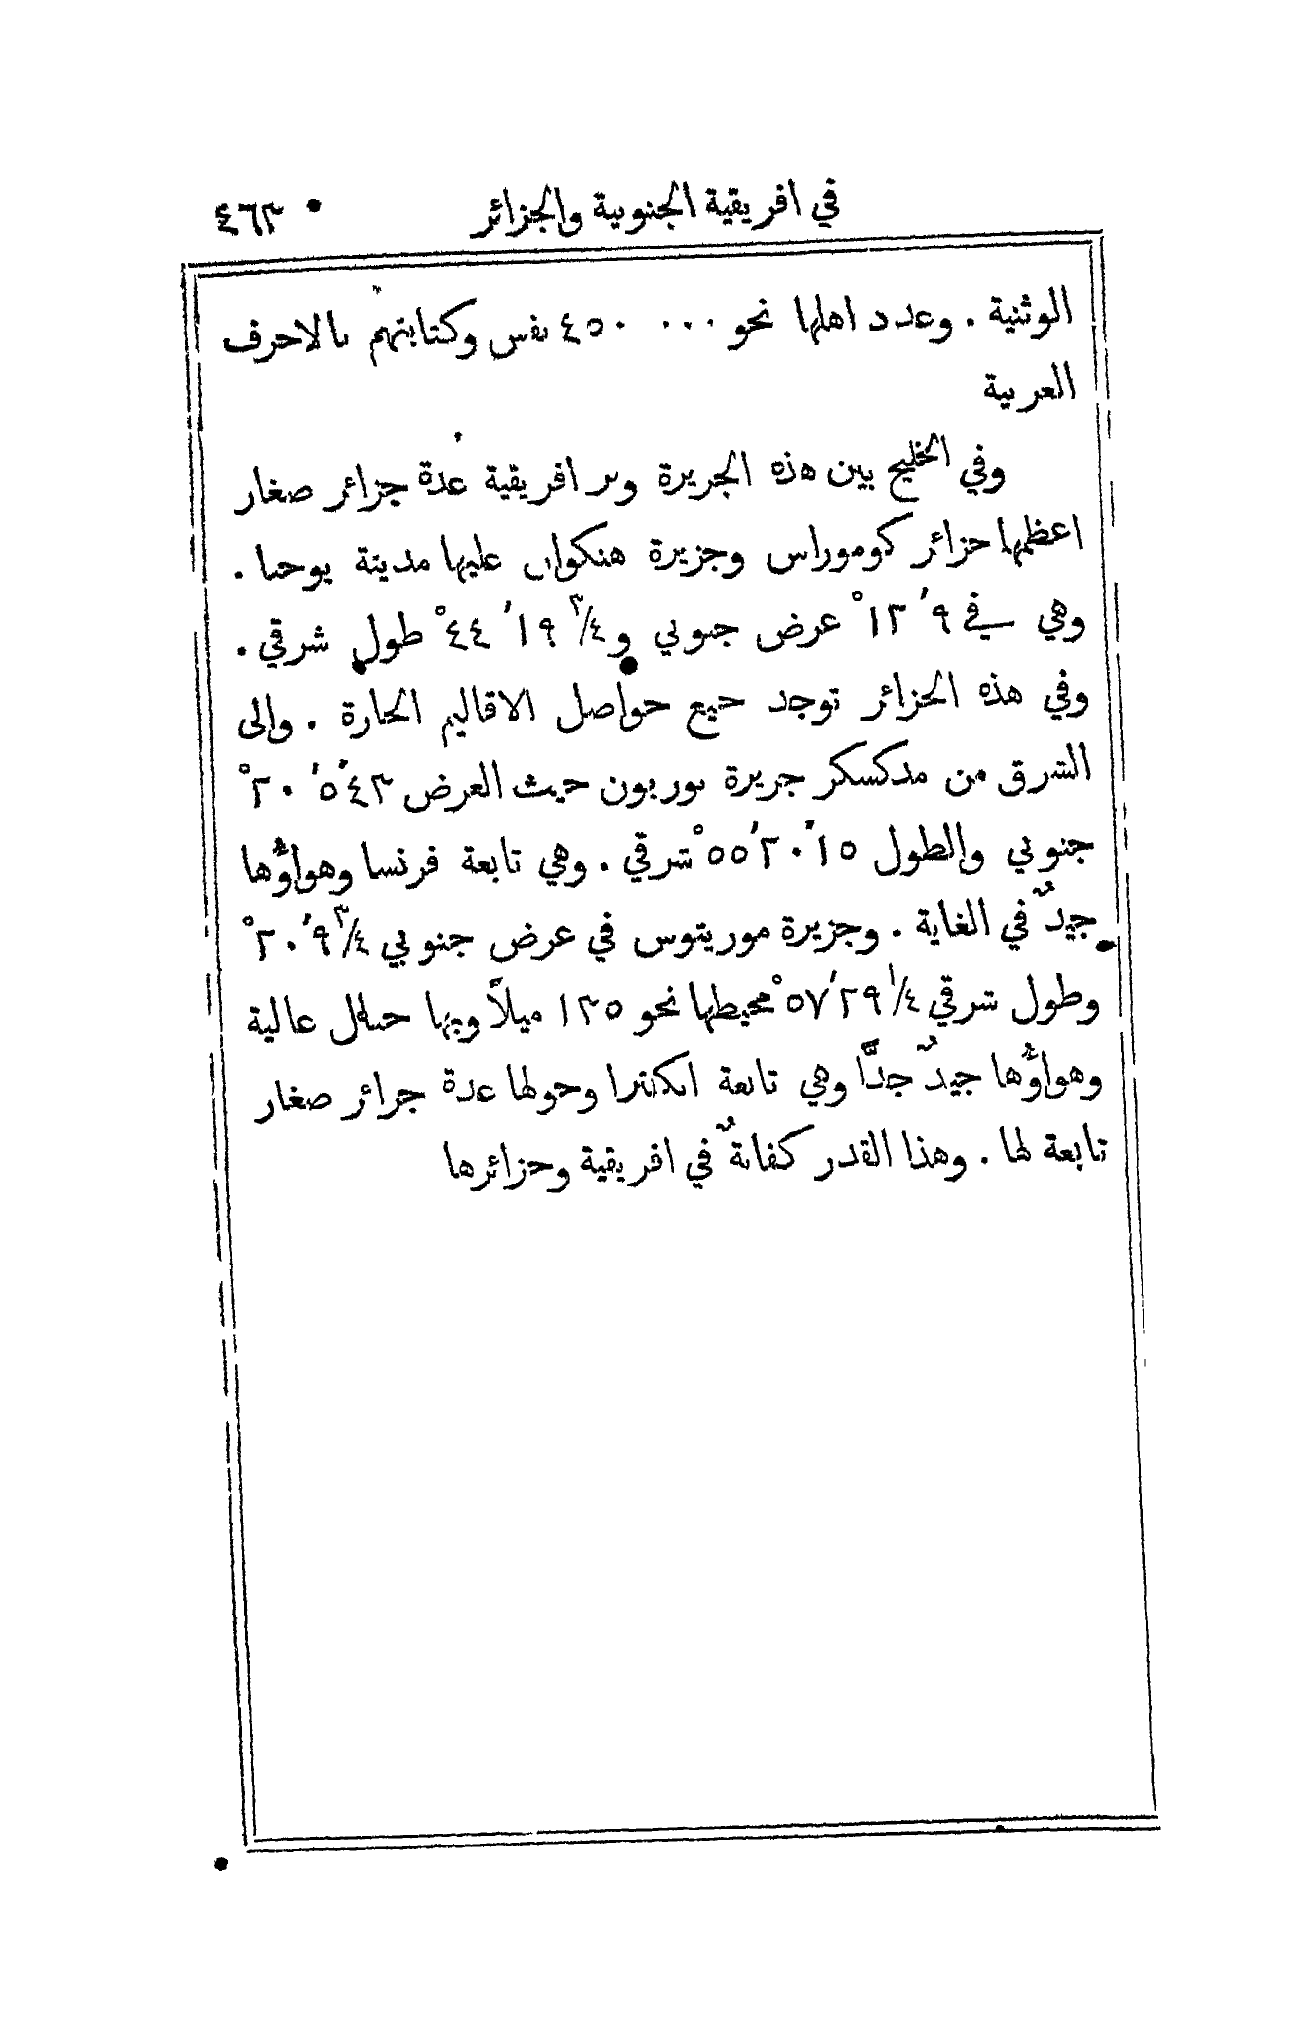 في افريقية الجنوبية والجزائر ٤٦٣
الوثنية . وعدد اهلها نحو ٤٥٠٠٠٠٠ نفس وكتابتهم بالاحرف
العربية
وفي الخليج بين هذه الجزيرة وبر افريقية عدة جزائر صغار
اعظمها جزائر كوموراس وجزيرة هنكوان عليها مدينة يوحنا .
وهي في ٩َ ١٢° عرض جنوبي و ٣/٤ ١٩َ ٤٤° طول شرقي .
وفي هذه الجزائر توجد جميع حواصل الاقاليم الحارة . والى
الشرق من مدكسكر جزيرة بوربون حيث العرض ٤٣ً ٥َ ٢٠°
جنوبي والطول ١٥ً ٢٠َ ٥٥° شرقي . وهي تابعة فرنسا وهواؤُها
جيدٌ في الغاية . وجزيرة موريتوس في عرض جنوبي ٣/٤ ٩َ ٢٠°
وطول شرقي ١/٤ ٢٩َ ٥٧° محيطها نحو ١٣٥ ميلاً وبها جبال عالية
وهواؤُها جيدٌ جدًّا وهي تابعة انكلترا وحولها عدة جزائر صغار
تابعة لها . وهذا القدر كفايةٌ في افريقية وجزائرها